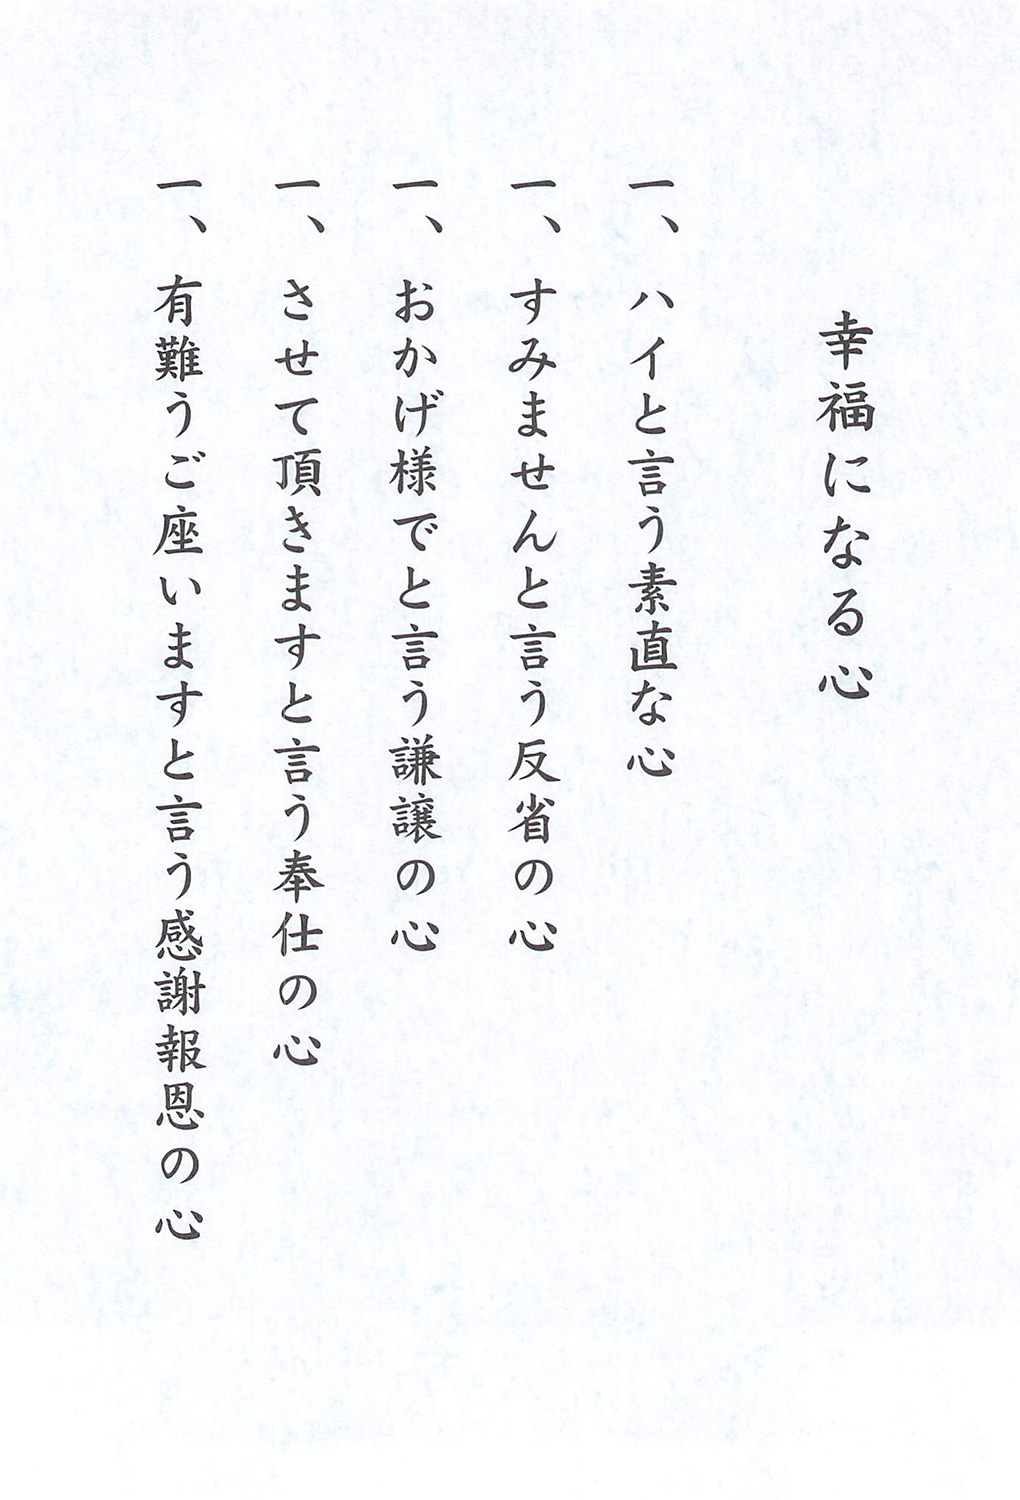 幸福になる心
一、ハイと言う素直な心
一、すみませんと言う反省の心
一、おかげ様でと言う謙譲の心
一、させて頂きますと言う奉仕の心
一、有難うご座いますと言う感謝報恩の心